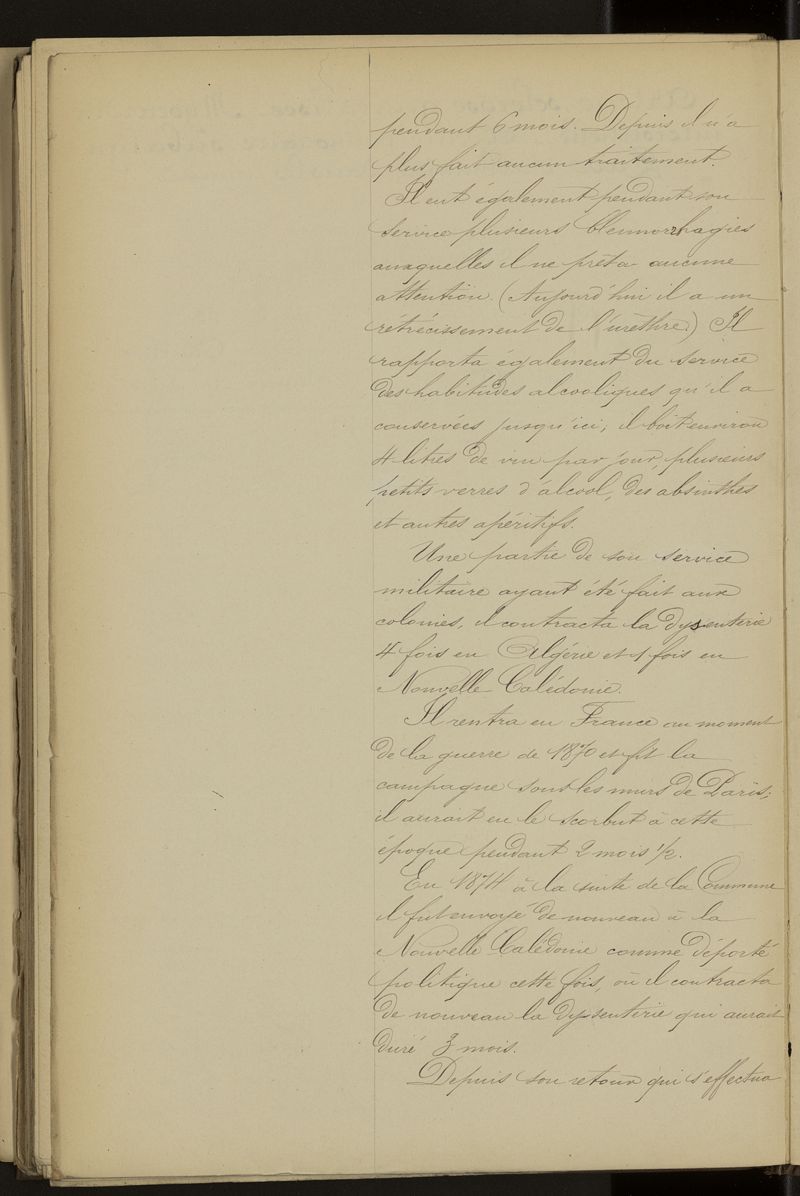 pendant 6 mois. Depuis il n'a
plus fait aucun traitement.
Il eut également pendant son
service plusieurs blennorrhagies
auxquelles il ne prêta aucune
attention. (Aujourd'hui il a un
rétrécissement de l'urèthre.) Il
rapporta également du service
des habitudes alcooliques qu'il a
conservées jusqu'ici; il boit environ
4 litres de vin par jour, plusieurs
petits verres d'alcool, des absinthes
et autres apéritifs.
Une partie de son service
militaire ayant été fait aux
colonies, il contracta la dysenterie
4 fois en Algérie et 1 fois en
Nouvelle Calédonie.
Il rentra en France au moment
de la guerre de 1870 et fit la
campagne sous les murs de Paris;
il aurait eu le scorbut à cette
époque pendant 2 mois 1/2.
En 1874 à la suite de la Commune
il fut envoyé de nouveau à la
Nouvelle Calédonie comme déporté
politique cette fois, où il contracta
de nouveau la dysenterie qui aurait
duré 3 mois.
Depuis son retour qui s'effectua